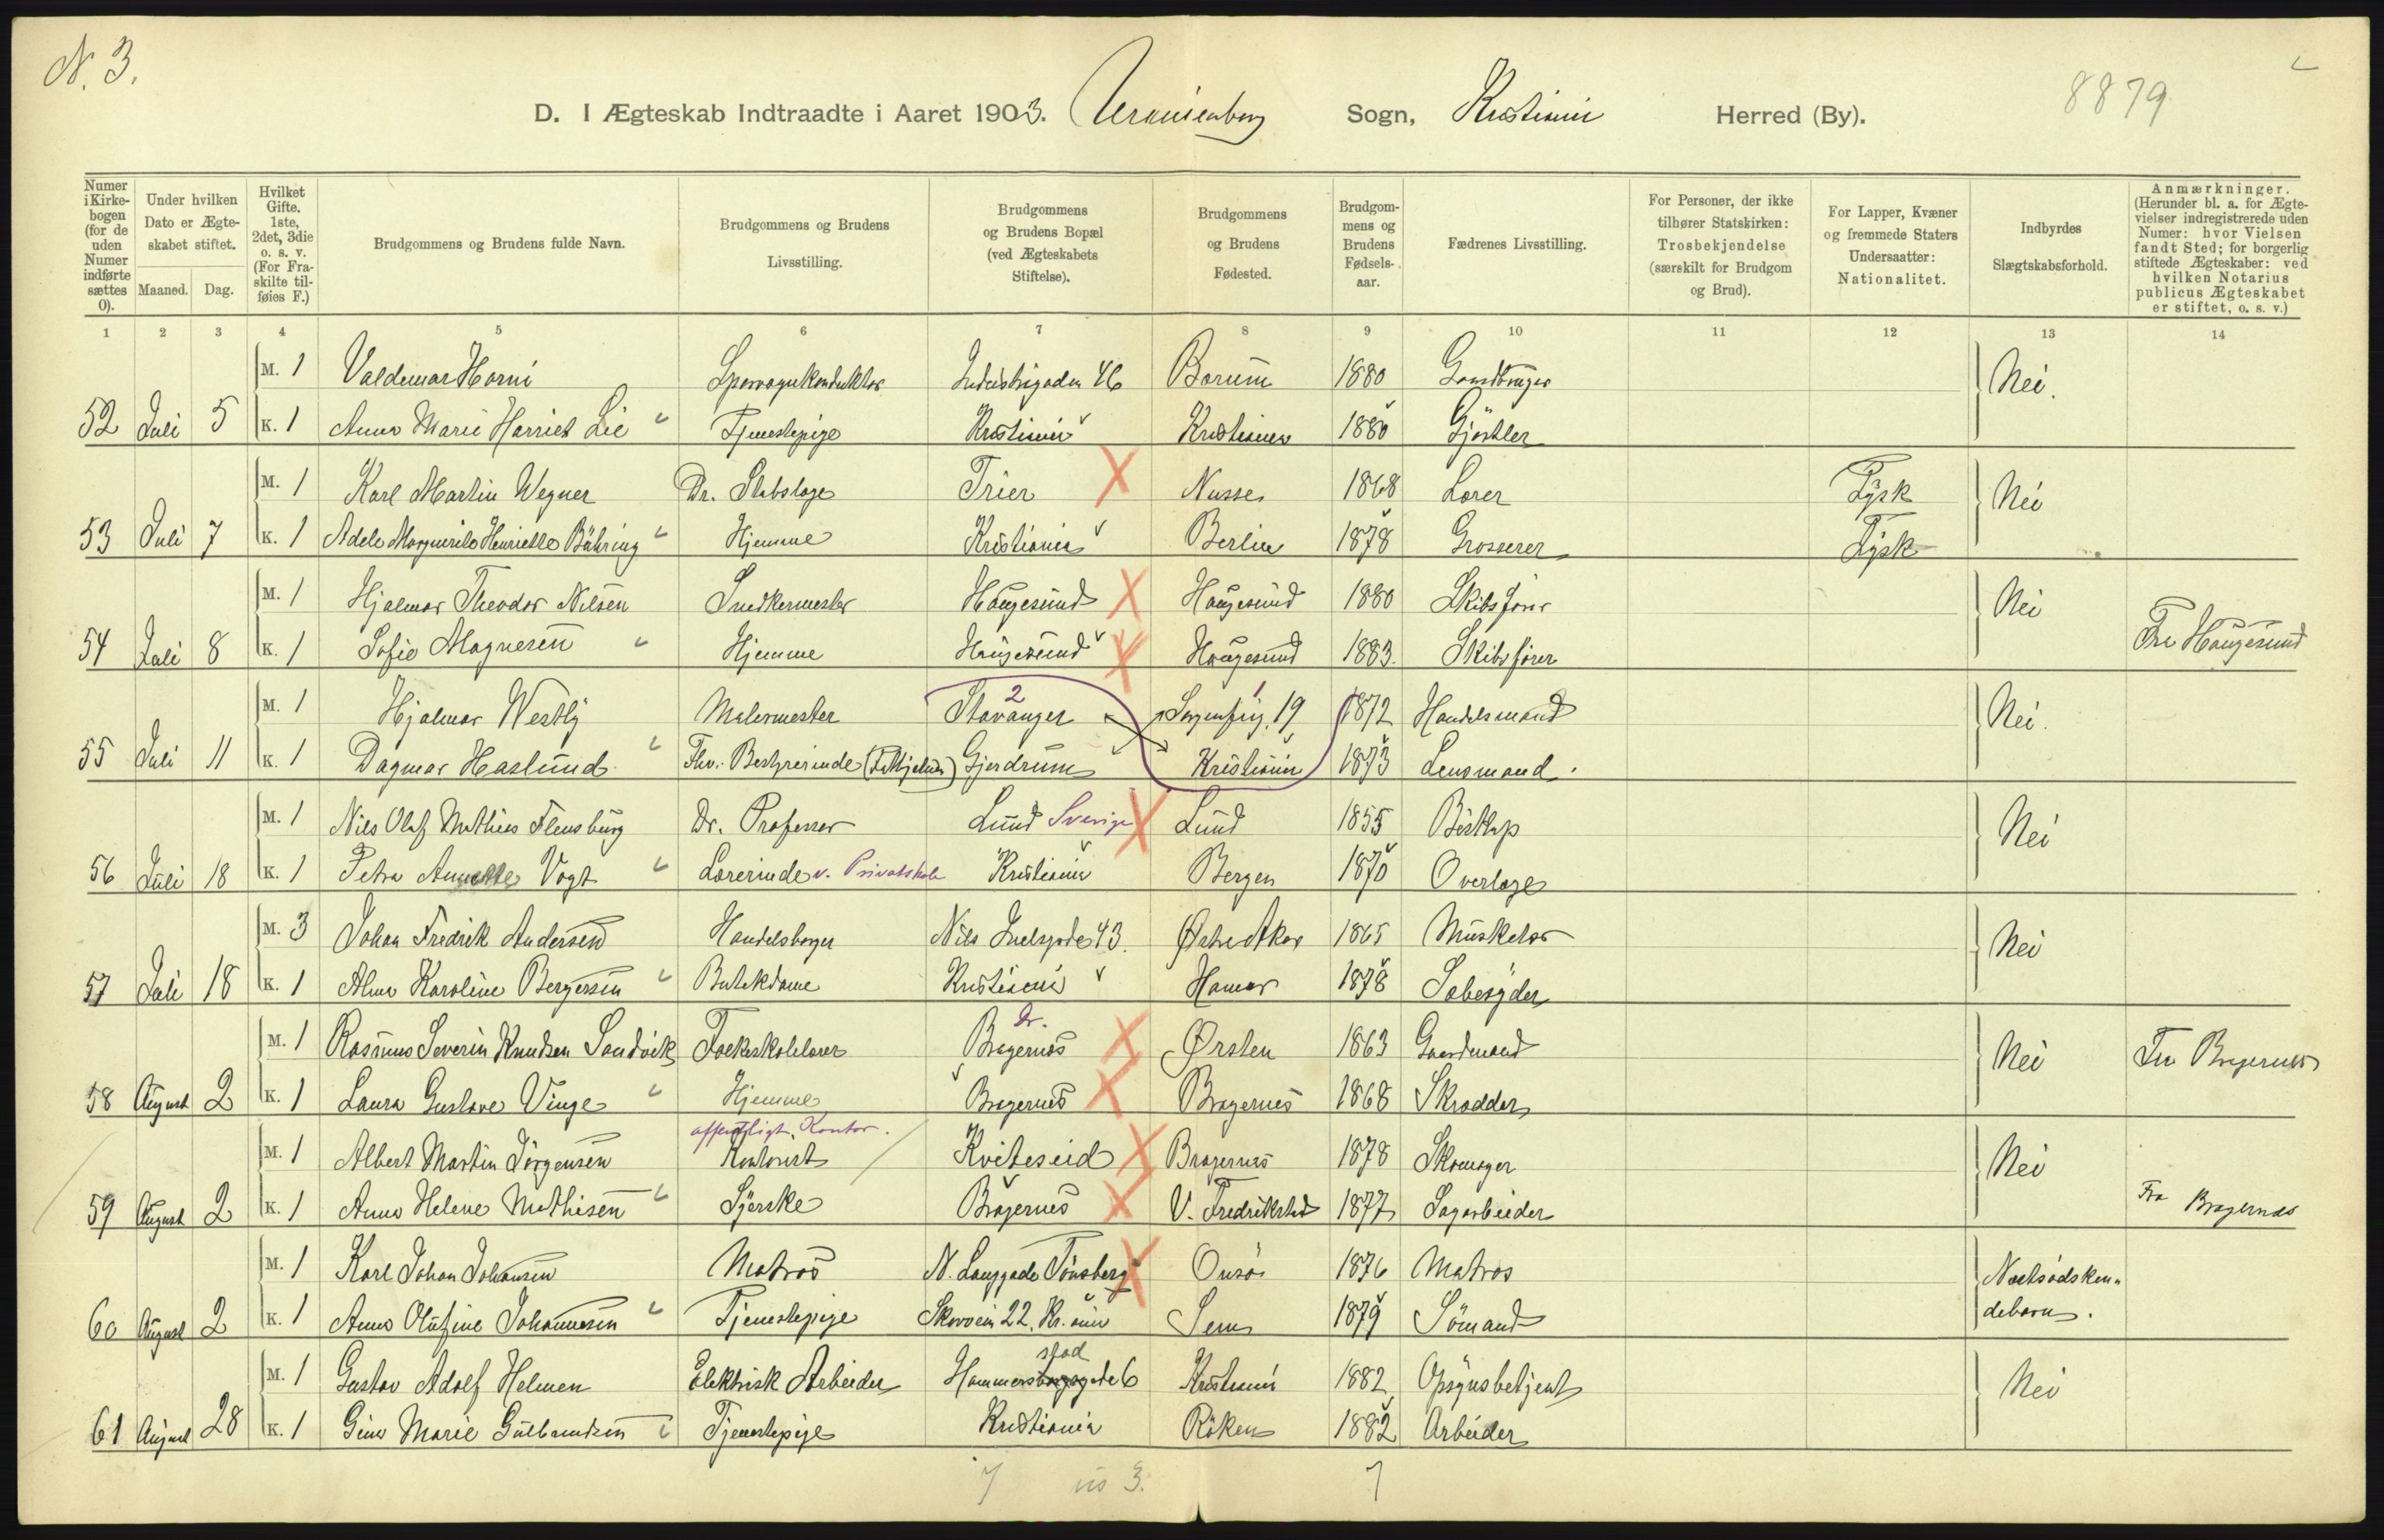 N. 3.
8879
D. I Ægteskab Indtraadte i Aaret 1903. Uranienborg Sogn, Kristiania Herred (By).
Numer i Kirkebogen (for de uden Numer indførte sættes 0).
Under hvilken Dato er Ægteskabet stiftet.
Maaned. Dag.
Hvilket Gifte. 1ste, 2det, 3die o. s. v. (For Fraskilte tilføies F.)
Brudgommens og Brudens fulde Navn.
Brudgommens og Brudens Livsstilling.
Brudgommens og Brudens Bopæl (ved Ægteskabets Stiftelse).
Brudgommens og Brudens Fødested.
Brudgommens og Brudens Fødselsaar.
Fædrenes Livsstilling.
For Personer, der ikke tilhører Statskirken: Trosbekjendelse (særskilt for Brudgom og Brud).
For Lapper, Kvæner og fremmede Staters Undersaatter: Nationalitet.
Indbyrdes Slægtskabsforhold.
Anmærkninger. (Herunder bl. a. for Ægtevielser indregistrerede uden Numer: hvor Vielsen fandt Sted; for borgerlig stiftede Ægteskaber: ved hvilken Notarius publicus Ægteskabet er stiftet, o. s. v.)
1 2 3 4 5 6 7 8 9 10 11 12 13 14
M. 1 Valdemar Horni Sporvognkonduktør Industrigaden 46 Bærum 1880 Gaardbruger Nei.
52 Juli 5 K. 1 Anna Marie Harriet Lie Tjenestepige Kristiania Kristiania 1880 Gjørtler
M. 1 Karl Martin Wegner Dr. Stabslæge Trier Nusse 1868 Lærer Tysk Nei
53 Juli 7 K. 1 Adele Marguerite Henriette Bühring Hjemme Kristiania Berlin 1878 Grosserer Tysk
M. 1 Hjalmar Theodor Nilsen Snedkermester Haugesund Haugesund 1880 Skibsfører Nei
54 Juli 8 K. 1 Sofie Magnesen Hjemme Haugesund Haugesund 1883. Skibsfører Fra Haugesund
M. 1 Hjalmar Westly Malermester Stavanger 2 Sorgenfrig. 19 1 1872 Handelsmand Nei.
55 Juli 11 K. 1 Dagmar Haslund Fhv. Bestyrerinde Gjerdrum Kristiania 1873 Lensmand.
M. 1 Nils Olaf Mathias Flensburg Dr. Professor Lund Sverige Lund 1855 Biskop Nei
56 Juli 18 K. 1 Petra Annette Vogt Lærerinde v. Privatskole Kristiania Bergen 1870 Overlæge
M. 3 Johan Fredrik Andersen Handelsborger Nils Juelsgade 43. Østre Aker 1865 Musketer Nei
57 Juli 18 K. 1 Alma Karoline Bergersen Butikdame Kristiania Hamar 1878 Sæbesyder
M. 1 Rasmus Severin Knudsen Sandvik Folkeskolelærer Dr. Bragernæs Ørsten 1863 Gaardmand Nei Fra Bragernæs
58 August 2 K. 1 Laura Gustava Vinge Hjemme Bragernes Bragernes 1868 Skrædder
offentligt. Kontor.
M. 1 Albert Martin Jörgensen Kontorist Kviteseid Bragernæs 1878 Skomager Nei
59 August 2 K. 1 Anna Helene Mathisen Syerske Bragernes V. Fredrikstad 1877 Sagarbeider Fra Bragernæs
M. 1 Karl Johan Johansen Matros N. Langgade Tönsberg Onsö 1876 Matros Næstsödskendebarn.
60 August 2 K. 1 Anna Olufine Johannesen Tjenestepige Skovvein 22, Kr. ania Sem 1879 Sömand
M. 1 Gustav Adolf Helmen Elektrisk Arbeider Hammerstadgade 6 Kristiania 1882 Opsynsbetjent Nei
61 August 28 K. 1 Gina Marie Gulbrandsen Tjenestepige Kristiania Röken 1882 Arbeider
7 3. 7